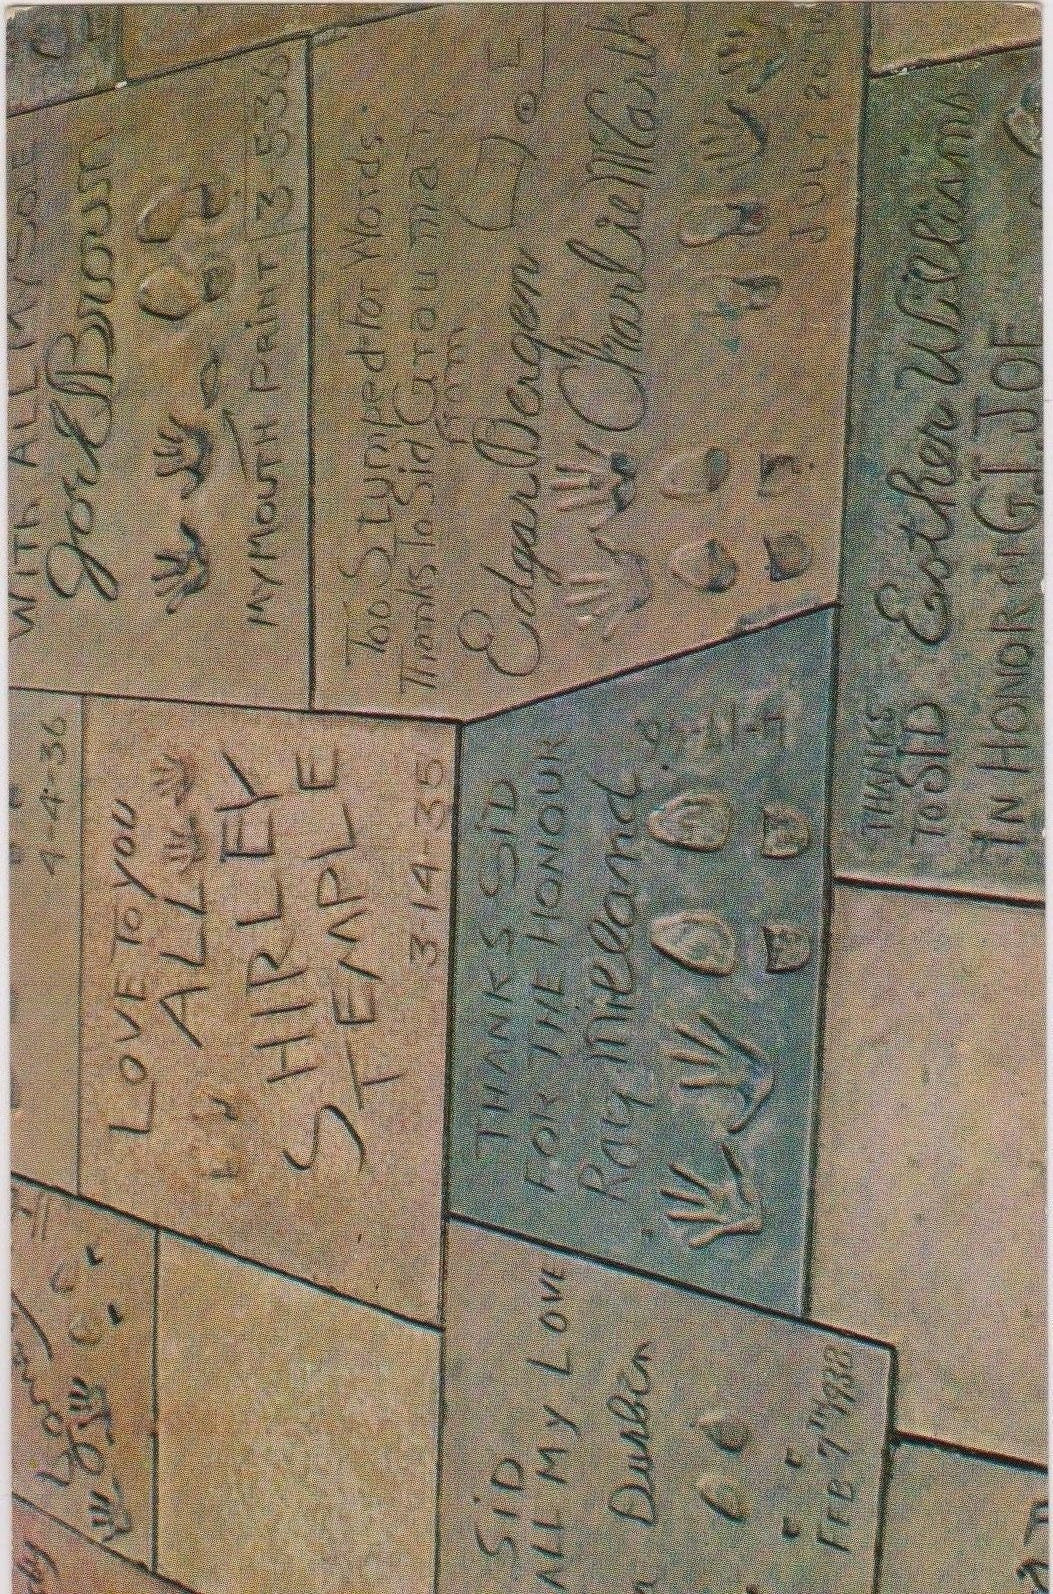 WITH ALL MY SOLE
Joe E Brown
MY MOUTH PRINT 3-5-36
Too Stumped For Words.
Thanks To Sid Grauman
From
Edgar Bergen
Charlie McCarth
JULY 20TH
THANKS
TO SID
Esther Williams
IN HONOR OF G.I. JOE
4-4-36
LOVE TO YOU
ALL
SHIRLEY
TEMPLE
3-14-35
THANKS SID
FOR THE HONOUR
Ray Milland
SID
ALL MY LOVE
Durbin
FEB 7TH 1938